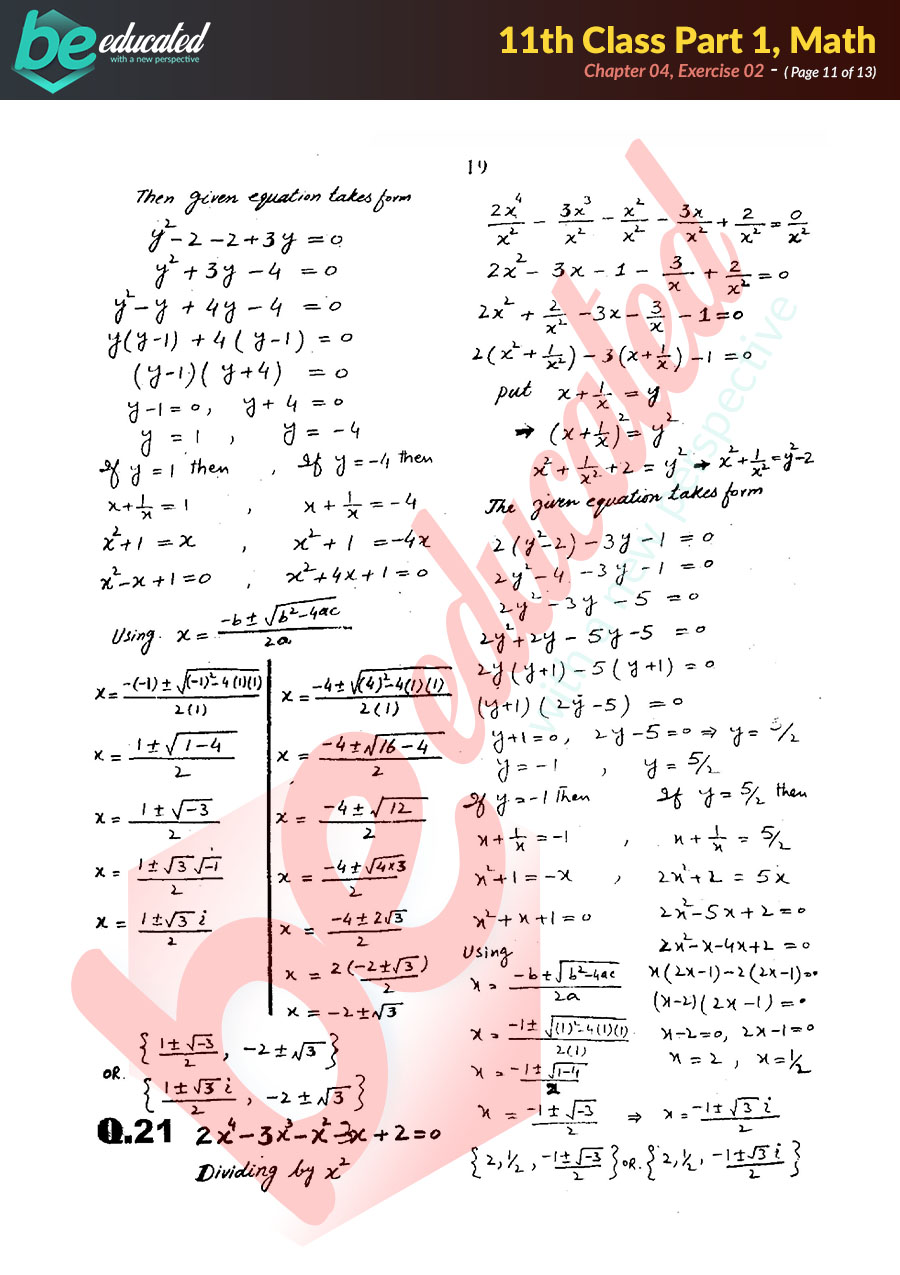 be educated
with a new perspective
11th Class Part 1, Math
Chapter 04, Exercise 02 - ( Page 11 of 13)
19
Then given equation takes form
y² - 2 - 2 + 3y = 0
y² + 3y - 4 = 0
y² - y + 4y - 4 = 0
y(y-1) + 4(y-1) = 0
(y-1)(y+4) = 0
y-1=0, y+4=0
y = 1 , y = -4
If y=1 then , If y=-4 then
x+1/x = 1 , x+1/x = -4
x²+1 = x , x²+1 = -4x
x²-x+1=0 , x²+4x+1=0
Using x = (-b±√(b²-4ac))/2a
x = (-(-1)±√((-1)²-4(1)(1)))/2(1)
x = (1±√(1-4))/2
x = (1±√-3)/2
x = (1±√3 √-1)/2
x = (1±√3 i)/2
x = (-4±√((4)²-4(1)(1)))/2(1)
x = (-4±√(16-4))/2
x = (-4±√12)/2
x = (-4±√(4×3))/2
x = (-4±2√3)/2
x = 2(-2±√3)/2
x = -2±√3
{(1±√-3)/2, -2±√3}
OR. {(1±√3 i)/2, -2±√3}
Q.21 2x⁴-3x³-x²-3x+2=0
Dividing by x²
2x⁴/x² - 3x³/x² - x²/x² - 3x/x² + 2/x² = 0/x²
2x² - 3x - 1 - 3/x + 2/x² = 0
2x² + 2/x² - 3x - 3/x - 1 = 0
2(x²+1/x²) - 3(x+1/x) - 1 = 0
put x+1/x = y
→ (x+1/x)² = y²
x²+1/x²+2 = y² → x²+1/x²=y²-2
The given equation takes form
2(y²-2) - 3y - 1 = 0
2y² - 4 - 3y - 1 = 0
2y² - 3y - 5 = 0
2y²+2y - 5y - 5 = 0
2y(y+1) - 5(y+1) = 0
(y+1)(2y-5) = 0
y+1=0, 2y-5=0 ⇒ y=5/2
y=-1 , y=5/2
If y=-1 Then If y=5/2 then
x+1/x = -1 , x+1/x = 5/2
x²+1=-x , 2x²+2 = 5x
x²+x+1=0
Using
x = (-b±√(b²-4ac))/2a
x = (-1±√((1)²-4(1)(1)))/2(1)
x = (-1±√(1-4))/2
2x²-5x+2=0
2x²-x-4x+2=0
x(2x-1)-2(2x-1)=0
(x-2)(2x-1)=0
x-2=0, 2x-1=0
x=2, x=1/2
x = (-1±√-3)/2 ⇒ x = (-1±√3 i)/2
{2, 1/2, (-1±√-3)/2} OR. {2, 1/2, (-1±√3 i)/2}
be educated
with a new perspective